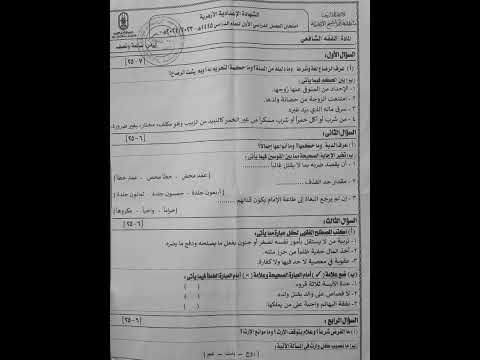 الشهادة الإعدادية الأزهرية
امتحان الفصل الدراسي الأول للعام الدراسي ١٤٤٥هـ ٢٠٢٣/٢٠٢٤م
مادة: الفقه الشافعي
السؤال الأول:
(٧-٢٥)
(أ) عرف الرضاع لغة وشرعا وما دليله من السنة؟ وما حكمة التحريم به؟ وبم يثبت الرضاع؟
(ب) بين الحكم فيما يأتي:
١- الإحداد من المتوفى عنها زوجها.
٢- امتنعت الزوجة من حضانة ولدها.
٣- سرق ماله الذي بيد غيره.
٤- من شرب أو أكل خمراً أو شرب مسكراً من غير الخمر كالنبيذ من الزبيب وهو مكلف، مختار، بغير ضرورة.
السؤال الثاني:
(٦-٢٥)
(أ) عرف الدية. وما حكمها؟ وما أنواعها إجمالا؟
(ب) تخير الإجابة الصحيحة مما بين القوسين فيما يأتي:
١- أن يقصد ضربه بما لا يقتل غالباً ....
( عمد محض - خطأ محض - عمد خطأ )
٢- مقدار حد القذف ....
( أربعون جلدة - خمسون جلدة - ثمانون جلدة )
٣- إن لم يرجع البغاة إلى طاعة الإمام يكون قتالهم ....
( حراما - واجبا - مكروها )
السؤال الثالث:
(٦-٢٥)
(أ) اكتب المصطلح الفقهي لكل عبارة مما يأتي:
١- تربية من لا يستقل بأمور نفسه لصغر أو جنون بفعل ما يصلحه ودفع ما يضره.
٢- أخذ المال خفية ظلما من حرز مثله.
٣- عقوبة في معصية لا حد فيها ولا كفارة.
(ب) ضع علامة (✓) أمام العبارة الصحيحة وعلامة (×) أمام العبارة الخطأ فيما يأتي:
١- عدة الآيسة ثلاثة قروء. ( )
٢- لا قصاص على والد بقتل ولده ( )
٣- نفقة البهائم واجبة على من يملكها. ( )
السؤال الرابع:
(٦-٢٥)
(أ) ما الفرض شرعاً؟ وعلام يتوقف الإرث؟ وما موانع الإرث؟
(ب) ما نصيب كل وارث في المسألة الآتية:
( زوج - بنت - عم )